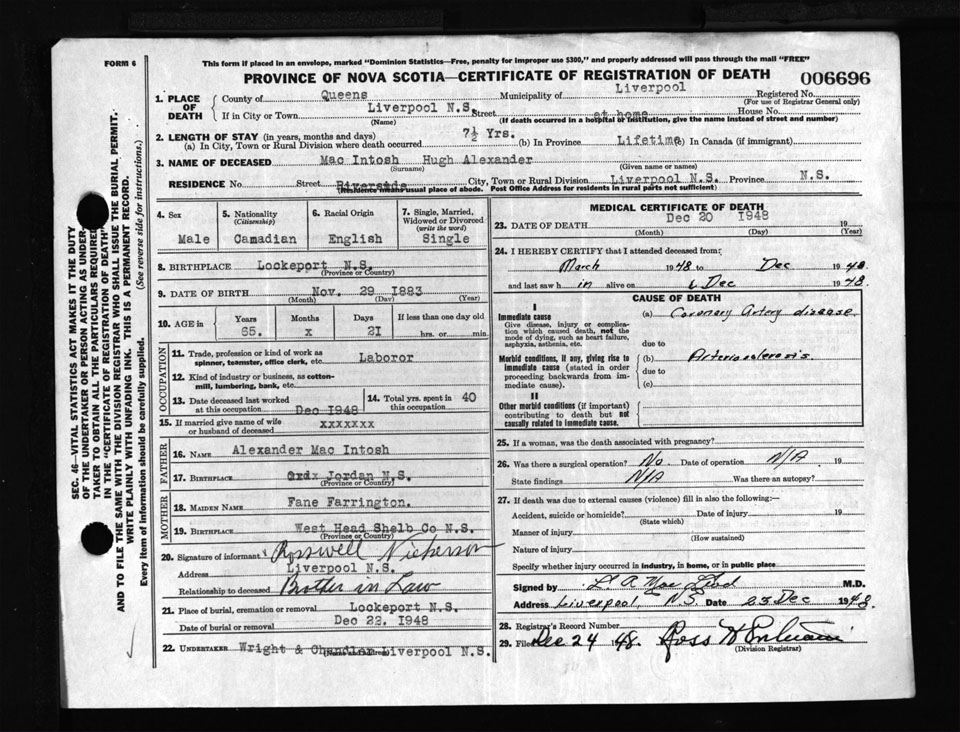 FORM 6
This form if placed in an envelope, marked "Dominion Statistics—Free, penalty for improper use $300," and properly addressed will pass through the mail "FREE"
PROVINCE OF NOVA SCOTIA—CERTIFICATE OF REGISTRATION OF DEATH 006696
1. PLACE OF DEATH County of Queens Municipality of Liverpool Registered No. (For use of Registrar General only)
If in City or Town Liverpool N.S. (Name) Street at home House No.
(If death occurred in a hospital or institution, give the name instead of street and number)
2. LENGTH OF STAY (in years, months and days)
(a) In City, Town or Rural Division where death occurred 7½ Yrs. (b) In Province Lifetime (c) In Canada (if immigrant)
3. NAME OF DECEASED Mac Intosh Hugh Alexander
(Surname) (Given name or names)
RESIDENCE No. Street Riverside City, Town or Rural Division Liverpool N.S. Province N.S.
(Residence means usual place of abode. Post Office Address for residents in rural parts not sufficient)
4. Sex Male
5. Nationality (Citizenship) Camadian
6. Racial Origin English
7. Single, Married, Widowed or Divorced (write the word) Single
8. BIRTHPLACE Lockeport N.S.
(Province or Country)
9. DATE OF BIRTH Nov. 29 1883
(Month) (Day) (Year)
10. AGE in Years 65. Months x Days 21 If less than one day old hrs. or min.
OCCUPATION
11. Trade, profession or kind of work as spinner, teamster, office clerk, etc. Laboror
12. Kind of industry or business, as cotton-mill, lumbering, bank, etc.
13. Date deceased last worked at this occupation Dec 1948
14. Total yrs. spent in this occupation 40
15. If married give name of wife or husband of deceased xxxxxxx
FATHER
16. NAME Alexander Mac Intosh
17. BIRTHPLACE Jordan N.S.
(Province or Country)
MOTHER
18. MAIDEN NAME Fane Farrington.
19. BIRTHPLACE West Head Shelb Co N.S.
(Province or Country)
20. Signature of informant Rosswell Nickerson
Address Liverpool N.S.
Relationship to deceased Brother in Law
21. Place of burial, cremation or removal Lockeport N.S.
Date of burial or removal Dec 22, 1948
22. UNDERTAKER Wright & Chandler Liverpool N.S.
(Name and address)
MEDICAL CERTIFICATE OF DEATH
23. DATE OF DEATH Dec 20 1948 19
(Month) (Day) (Year)
24. I HEREBY CERTIFY that I attended deceased from:
March 1948 to Dec 1948.
and last saw him alive on 6 Dec 1948.
CAUSE OF DEATH
I
Immediate cause
Give disease, injury or complication which caused death, not the mode of dying, such as heart failure, asphyxia, asthenia, etc.
(a) Coronary Artery disease.
due to
Morbid conditions, if any, giving rise to immediate cause (stated in order proceeding backwards from immediate cause).
(b) Arteriosclerosis.
due to
(c)
II
Other morbid conditions (if important) contributing to death but not causally related to immediate cause.
25. If a woman, was the death associated with pregnancy?
26. Was there a surgical operation? No Date of operation N/A 19
State findings N/A Was there an autopsy?
27. If death was due to external causes (violence) fill in also the following:—
Accident, suicide or homicide? Date of injury 19
(State which)
Manner of injury
(How sustained)
Nature of injury
Specify whether injury occurred in industry, in home, or in public place
Signed by L. A. Mac Leod M.D.
Address Liverpool, N.S. Date 23 Dec 1948.
28. Registrar's Record Number
29. Filed Dec 24 1948. Ross
(Division Registrar)
SEC. 46—VITAL STATISTICS ACT MAKES IT THE DUTY
OF THE UNDERTAKER OR PERSON ACTING AS UNDER-
TAKER TO OBTAIN ALL THE PARTICULARS REQUIRED
IN THE "CERTIFICATE OF REGISTRATION OF DEATH"
AND TO FILE THE SAME WITH THE DIVISION REGISTRAR WHO SHALL ISSUE THE BURIAL PERMIT.
WRITE PLAINLY WITH UNFADING INK. THIS IS A PERMANENT RECORD.
Every item of information should be carefully supplied. (See reverse side for instructions.)